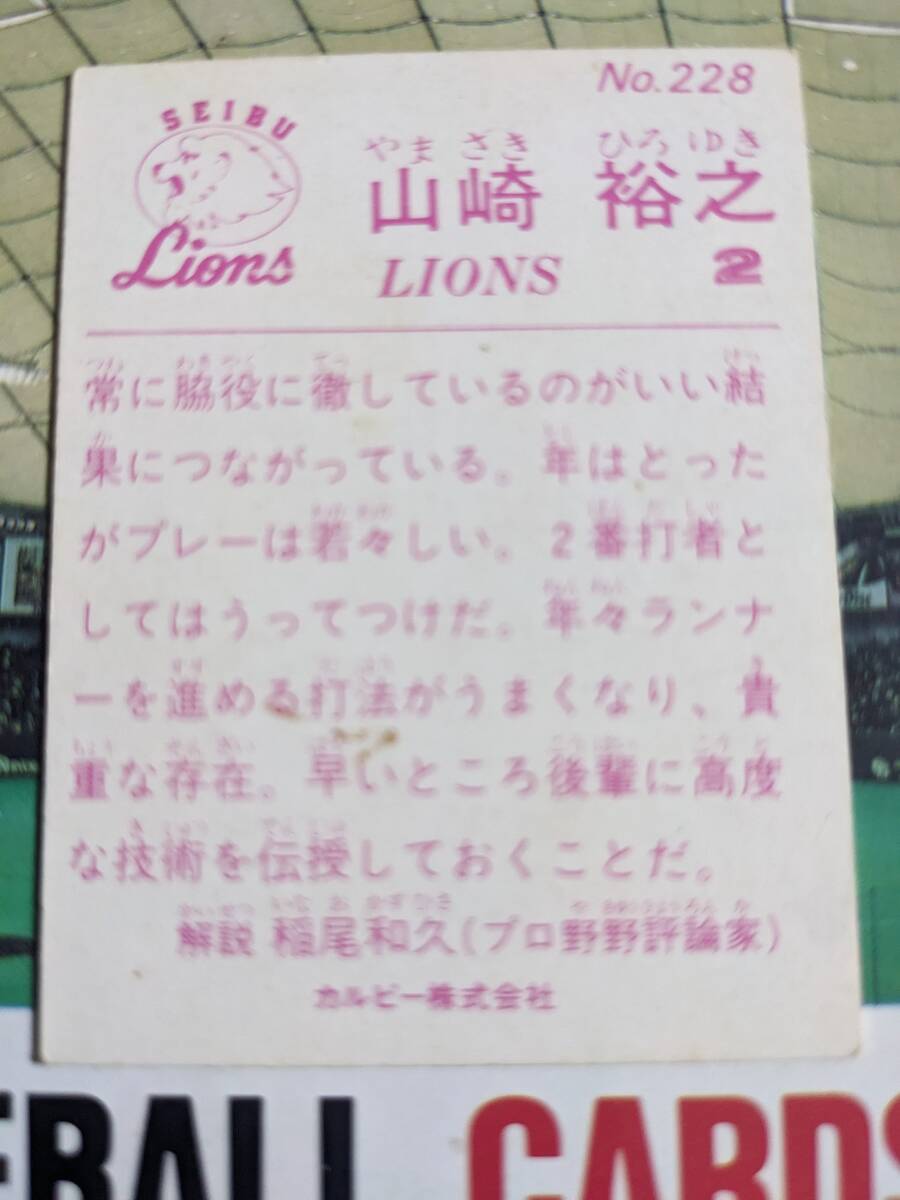 No.228
SEIBU
Lions
やまざき ひろゆき
山崎 裕之
LIONS 2
常に脇役に徹しているのがいい結
果につながっている。年はとった
がプレーは若々しい。2番打者と
してはうってつけだ。年々ランナ
ーを進める打法がうまくなり、貴
重な存在。早いところ後輩に高度
な技術を伝授しておくことだ。
解説 稲尾和久(プロ野野評論家)
カルビー株式会社
EBALL CARDS